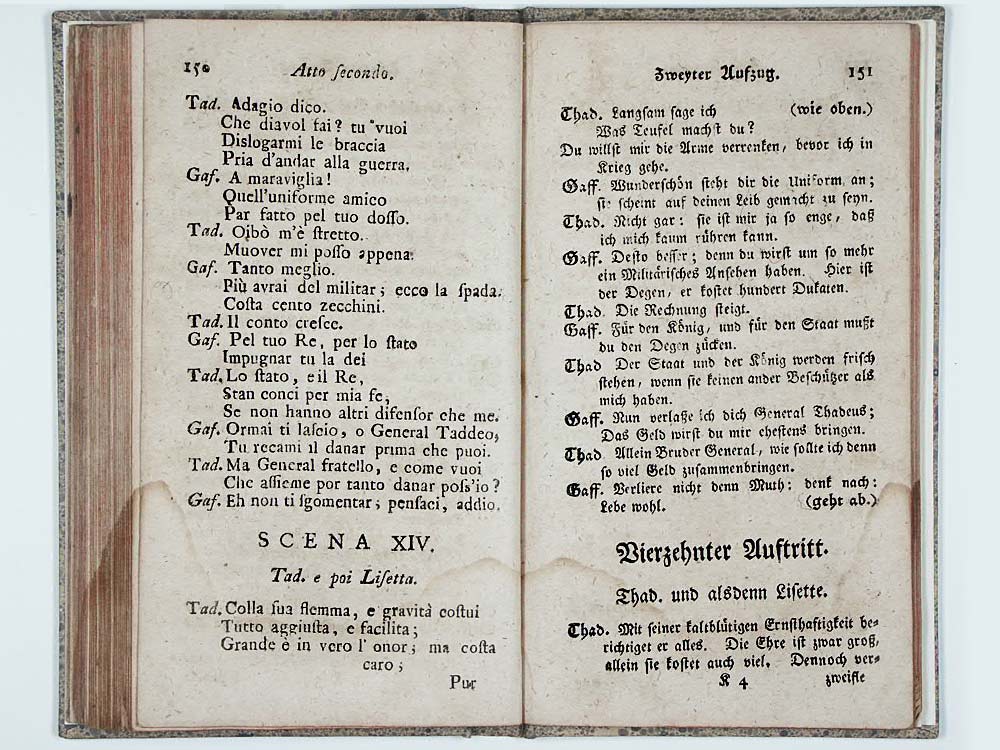 150 Atto ſecondo.
Tad. Adagio dico.
Che diavol fai? tu vuoi
Dislogarmi le braccia
Pria d'andar alla guerra.
Gaf. A maraviglia!
Quell'uniforme amico
Par fatto pel tuo doſſo.
Tad. Oibò m'è ſtretto.
Muover mi poſſo appena.
Gaf. Tanto meglio.
Più avrai del militar; ecco la ſpada.
Coſta cento zecchini.
Tad. Il conto creſce.
Gaf. Pel tuo Re, per lo ſtato
Impugnar tu la dei
Tad. Lo ſtato, e il Re,
Stan conci per mia fe,
Se non hanno altri difenſor che me.
Gaf. Ormai ti laſcio, o General Taddeo,
Tu recami il danar prima che puoi.
Tad. Ma General fratello, e come vuoi
Che aſſieme por tanto danar poſs'io?
Gaf. Eh non ti ſgomentar; penſaci, addio.
SCENA XIV.
Tad. e poi Liſetta.
Tad. Colla ſua flemma, e gravità coſtui
Tutto aggiuſta, e facilita;
Grande è in vero l'onor; ma coſta
caro;
Pur
Zweyter Aufzug. 151
Thad. Langſam ſage ich (wie oben.)
Was Teufel machſt du?
Du willſt mir die Arme verrenken, bevor ich in
Krieg gehe.
Gaff. Wunderſchön ſteht dir die Uniform an;
ſie ſcheint auf deinen Leib gemacht zu ſeyn.
Thad. Nicht gar: ſie iſt mir ja ſo enge, daß
ich mich kaum rühren kann.
Gaff. Deſto beſſer; denn du wirſt um ſo mehr
ein Militäriſches Anſehen haben. Hier iſt
der Degen, er koſtet hundert Dukaten.
Thad. Die Rechnung ſteigt.
Gaff. Für den König, und für den Staat mußt
du den Degen zücken.
Thad Der Staat und der König werden friſch
ſtehen, wenn ſie keinen ander Beſchützer als
mich haben.
Gaff. Nun verlaße ich dich General Thadeus;
Das Geld wirſt du mir eheſtens bringen.
Thad. Allein Bruder General, wie ſollte ich denn
ſo viel Geld zuſammenbringen.
Gaff. Verliere nicht denn Muth: denk nach:
Lebe wohl. (geht ab.)
Vierzehnter Auftritt.
Thad. und alsdenn Liſette.
Thad. Mit ſeiner kaltblütigen Ernſthaftigkeit be-
richtiget er alles. Die Ehre iſt zwar groß,
allein ſie koſtet auch viel. Dennoch ver-
K 4 zweifle